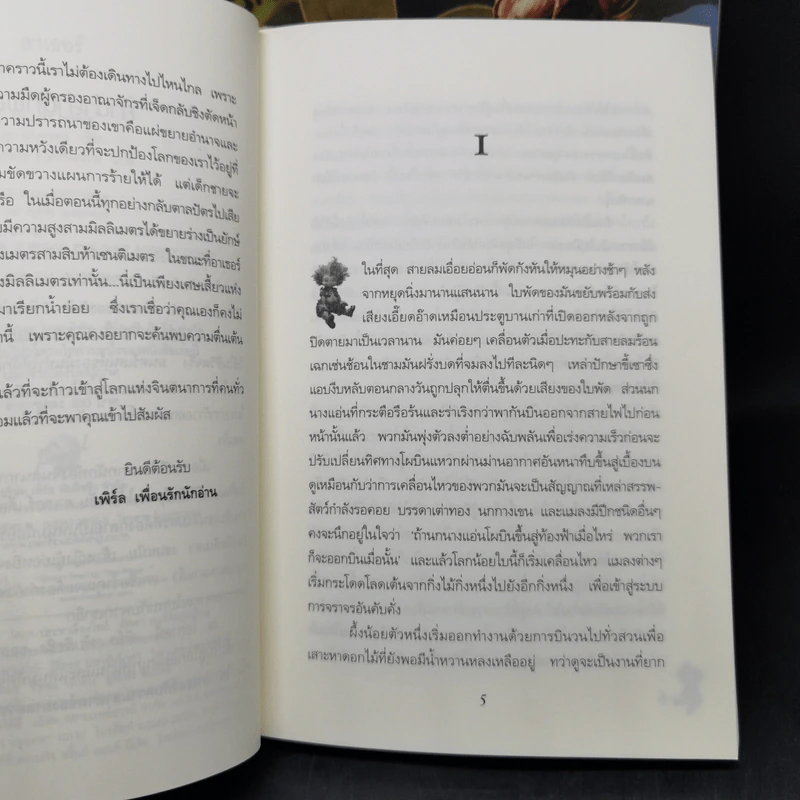 คราวนี้เราไม่ต้องเดินทางไปไหนไกล เพราะ
ความมืดผู้ครองอาณาจักรที่เจ็ดกลับชิงตัดหน้า
ความปรารถนาของเขาคือแผ่ขยายอำนาจและ
ความหวังเดียวที่จะปกป้องโลกของเราไว้อยู่ที่
ขัดขวางแผนการร้ายให้ได้ แต่เด็กชายจะ
ในเมื่อตอนนี้ทุกอย่างกลับตาลปัตรไปเสีย
มีความสูงสามมิลลิเมตรได้ขยายร่างเป็นยักษ์
เมตรสามสิบห้าเซนติเมตร ในขณะที่อาเธอร์
มิลลิเมตรเท่านั้น...นี่เป็นเพียงเศษเสี้ยวแห่ง
มาเรียกน้ำย่อย ซึ่งเราเชื่อว่าคุณเองก็คงไม่
นี้ เพราะคุณคงอยากจะค้นพบความตื่นเต้น
แล้วที่จะก้าวเข้าสู่โลกแห่งจินตนาการที่คนทั่ว
แล้วที่จะพาคุณเข้าไปสัมผัส
ยินดีต้อนรับ
เพิร์ล เพื่อนรักนักอ่าน
I
ในที่สุด สายลมเอื่อยอ่อนก็พัดกังหันให้หมุนอย่างช้าๆ หลัง
จากหยุดนิ่งมานานแสนนาน ใบพัดของมันขยับพร้อมกับส่ง
เสียงเอี๊ยดอ๊าดเหมือนประตูบานเก่าที่เปิดออกหลังจากถูก
ปิดตายมาเป็นเวลานาน มันค่อยๆ เคลื่อนตัวเมื่อปะทะกับสายลมร้อน
เฉกเช่นช้อนในชามมันฝรั่งบดที่จมลงไปทีละนิดๆ เหล่าปักษาขี้เซาซึ่ง
แอบงีบหลับตอนกลางวันถูกปลุกให้ตื่นขึ้นด้วยเสียงของใบพัด ส่วนนก
นางแอ่นที่กระตือรือร้นและร่าเริงกว่าพากันบินออกจากสายไฟไปก่อน
หน้านั้นแล้ว พวกมันพุ่งตัวลงต่ำอย่างฉับพลันเพื่อเร่งความเร็วก่อนจะ
ปรับเปลี่ยนทิศทางโผบินแหวกผ่านม่านอากาศอันหนาทึบขึ้นสู่เบื้องบน
ดูเหมือนกับว่าการเคลื่อนไหวของพวกมันจะเป็นสัญญาณที่เหล่าสรรพ-
สัตว์กำลังรอคอย บรรดาเต่าทอง นกกางเขน และแมลงมีปีกชนิดอื่นๆ
คงจะนึกอยู่ในใจว่า 'ถ้านกนางแอ่นโผบินขึ้นสู่ท้องฟ้าเมื่อไหร่ พวกเรา
ก็จะออกบินเมื่อนั้น' และแล้วโลกน้อยใบนี้ก็เริ่มเคลื่อนไหว แมลงต่างๆ
เริ่มกระโดดโลดเต้นจากกิ่งไม้กิ่งหนึ่งไปยังอีกกิ่งหนึ่ง เพื่อเข้าสู่ระบบ
การจราจรอันคับคั่ง
ผึ้งน้อยตัวหนึ่งเริ่มออกทำงานด้วยการบินวนไปทั่วสวนเพื่อ
เสาะหาดอกไม้ที่ยังพอมีน้ำหวานหลงเหลืออยู่ ทว่าดูจะเป็นงานที่ยาก
5